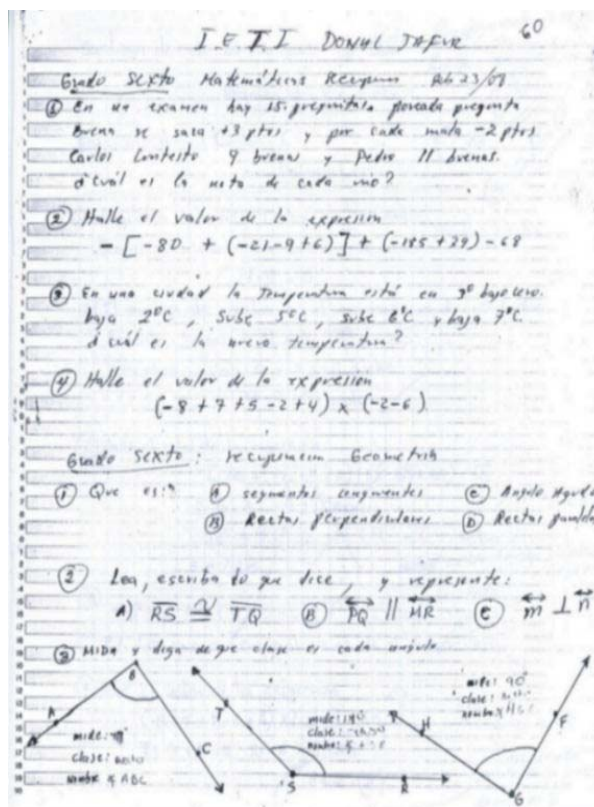 I.E.T.I DONAL JAFUR 6º
Grado Sexto Matemáticas
① En un examen hay 15 preguntas por cada pregunta
Buena se saca +3 ptos y por cada mala -2 ptos
Carlos Contesto 9 buenas y Pedro 11 buenas.
¿Cuál es la nota de cada uno?
② Halle el valor de la expresion
- [-80 + (-21-9+6)] + (-185+29) - 68
③ En una ciudad la Temperatura está en 9º bajo cero.
baja 2ºC, Sube 5ºC, sube 8ºC y baja 7ºC.
¿Cuál es la nueva temperatura?
④ Halle el valor de la expresion
(-8+7+5-2+4) x (-2-6)
Grado Sexto: recuperacion Geometria
① Que es:? Ⓐ segmentos congruentes Ⓒ Angulo Agudo
Ⓑ Rectas Perpendiculares Ⓓ Rectas
② Lea, escriba lo que dice, y represente:
A) RS ≅ TQ Ⓑ PQ || MR Ⓒ m ⊥ n
③ MIDA y diga de que clase es cada angulo
B
A
C
mide:
clase:
nombre ∡ ABC
T
S
R
mide:
clase:
nombre
H
G
F
mide: 90º
clase:
nombre